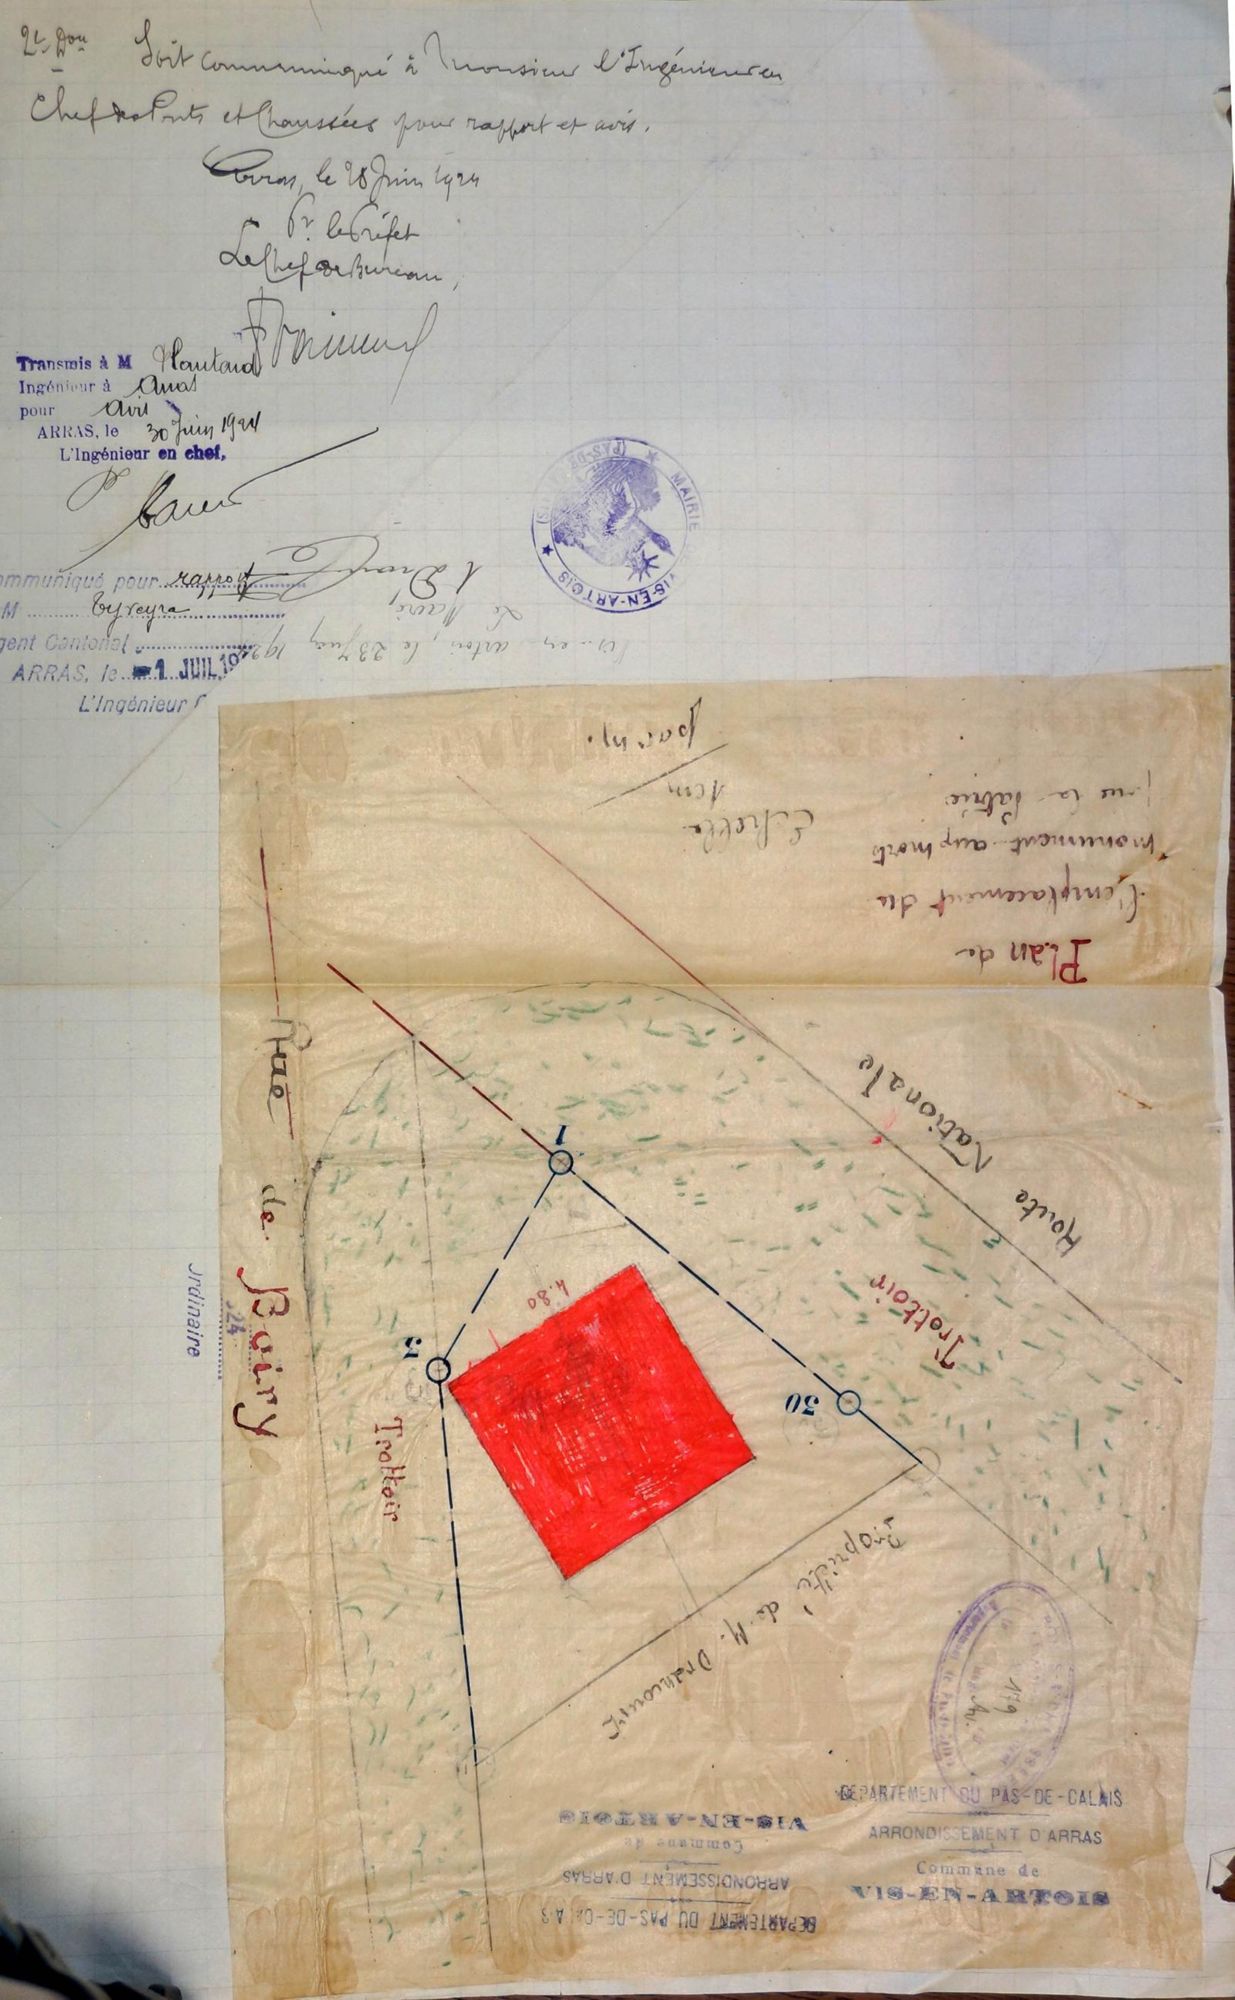 2e Don Soit communiqué à Monsieur l'Ingénieur en
Chef des Ponts et Chaussées pour rapport et avis.
Arras, le 28 Juin 1924
Pr. le Préfet
Le Chef de Bureau,
Transmis à M
Ingénieur à Arras
pour avis
ARRAS, le 30 Juin 1924
L'Ingénieur en chef,
MAIRIE
VIS-EN-ARTOIS
ommuniqué pour rapport
M
gent Cantonal
ARRAS, le -1 JUIL.19
L'Ingénieur
Vis en artois, le 23 Juin 1924
Le Maire,
Plan de
l'emplacement du
monument aux morts
pour la Patrie
Echelle
1cm
par m.
Rue de Boiry
Route Nationale
Trottoir
Trottoir
1
3
30
4.80
Propriété de M. Drancourt
rdinaire
24
179
DEPARTEMENT DU PAS-DE-CALAIS
ARRONDISSEMENT D'ARRAS
Commune de
VIS-EN-ARTOIS
DEPARTEMENT DU PAS-DE-CALAIS
ARRONDISSEMENT D'ARRAS
Commune de
VIS-EN-ARTOIS